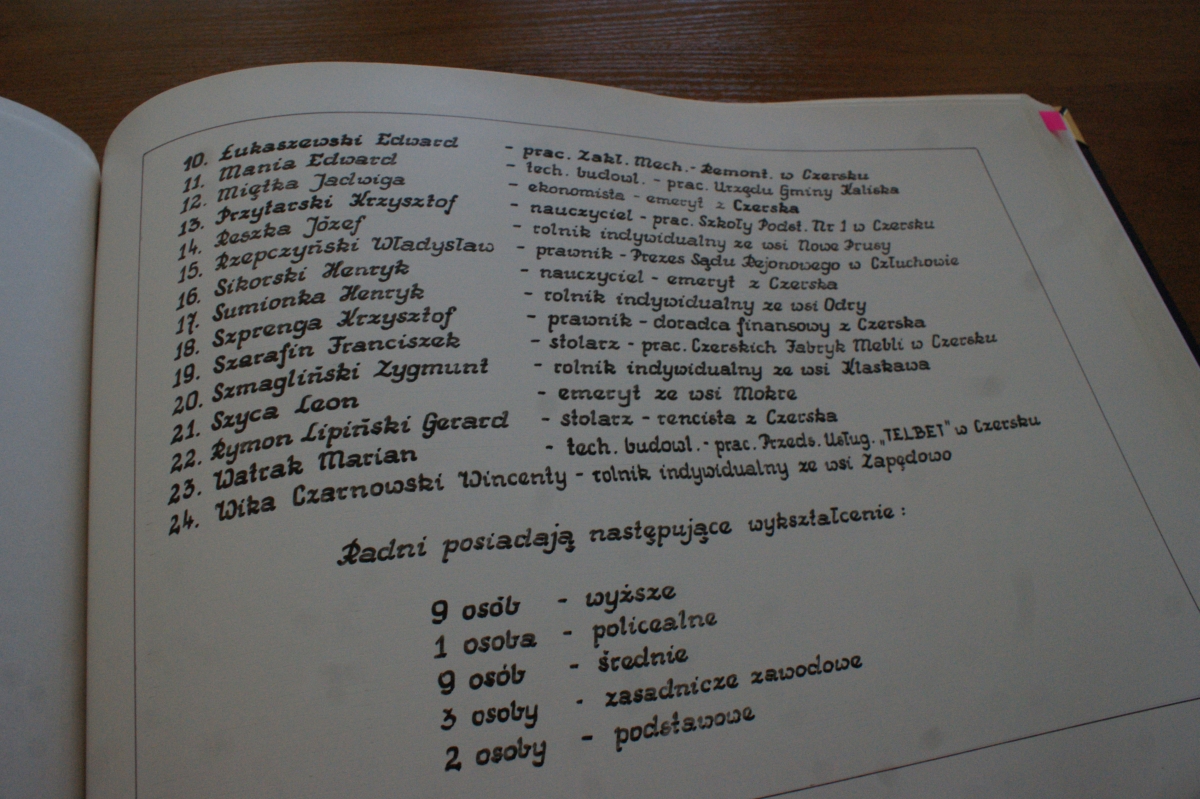 10. Łukaszewski Edward - prac. Zakł. Mech.- Remont. w Czersku
11. Mania Edward - tech. budowl. - prac. Urzędu Gminy Kaliska
12. Miętka Jadwiga - ekonomista - emeryt z Czerska
13. Przytarski Krzysztof - nauczyciel - prac. Szkoły Podst. Nr 1 w Czersku
14. Reszka Józef - rolnik indywidualny ze wsi Nowe Prusy
15. Rzepczyński Władysław - prawnik - Prezes Sądu Rejonowego w Człuchowie
16. Sikorski Henryk - nauczyciel - emeryt z Czerska
17. Sumionka Henryk - rolnik indywidualny ze wsi Odry
18. Szprenga Krzysztof - prawnik - doradca finansowy z Czerska
19. Szarafin Franciszek - stolarz - prac. Czerskich Fabryk Mebli w Czersku
20. Szmagliński Zygmunt - rolnik indywidualny ze wsi Klaskawa
21. Szyca Leon - emeryt ze wsi Mokre
22. Rymon Lipiński Gerard - stolarz - rencista z Czerska
23. Watrak Marian - tech. budowl. - prac. Przeds. Usług. „TELBET" w Czersku
24. Wika Czarnowski Wincenty - rolnik indywidualny ze wsi Zapędowo
Radni posiadają następujące wykształcenie :
9 osób - wyższe
1 osoba - policealne
9 osób - średnie
3 osoby - zasadnicze zawodowe
2 osoby - podstawowe